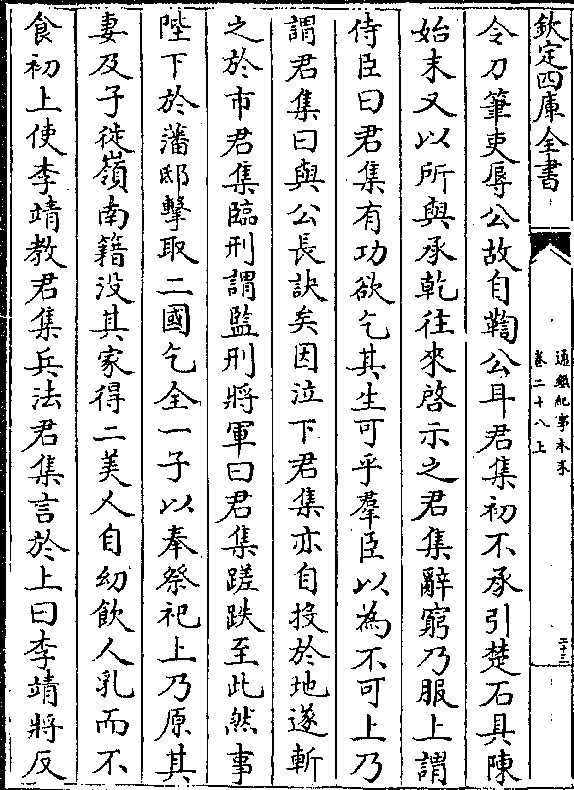 欽定四庫全書
通鑑紀事本末
卷二十八上
二十三
令刀筆吏辱公故自鞫公耳君集初不承引楚石具陳
始末又以所與承乾往來啓示之君集辭窮乃服上謂
侍臣曰君集有功欲乞其生可乎羣臣以為不可上乃
謂君集曰與公長訣矣因泣下君集亦自投於地遂斬
之於市君集臨刑謂監刑將軍曰君集蹉跌至此然事
陛下於藩邸擊取二國乞全一子以奉祭祀上乃原其
妻及子徙嶺南籍没其家得二美人自幼飲人乳而不
食初上使李靖教君集兵法君集言於上曰李靖將反